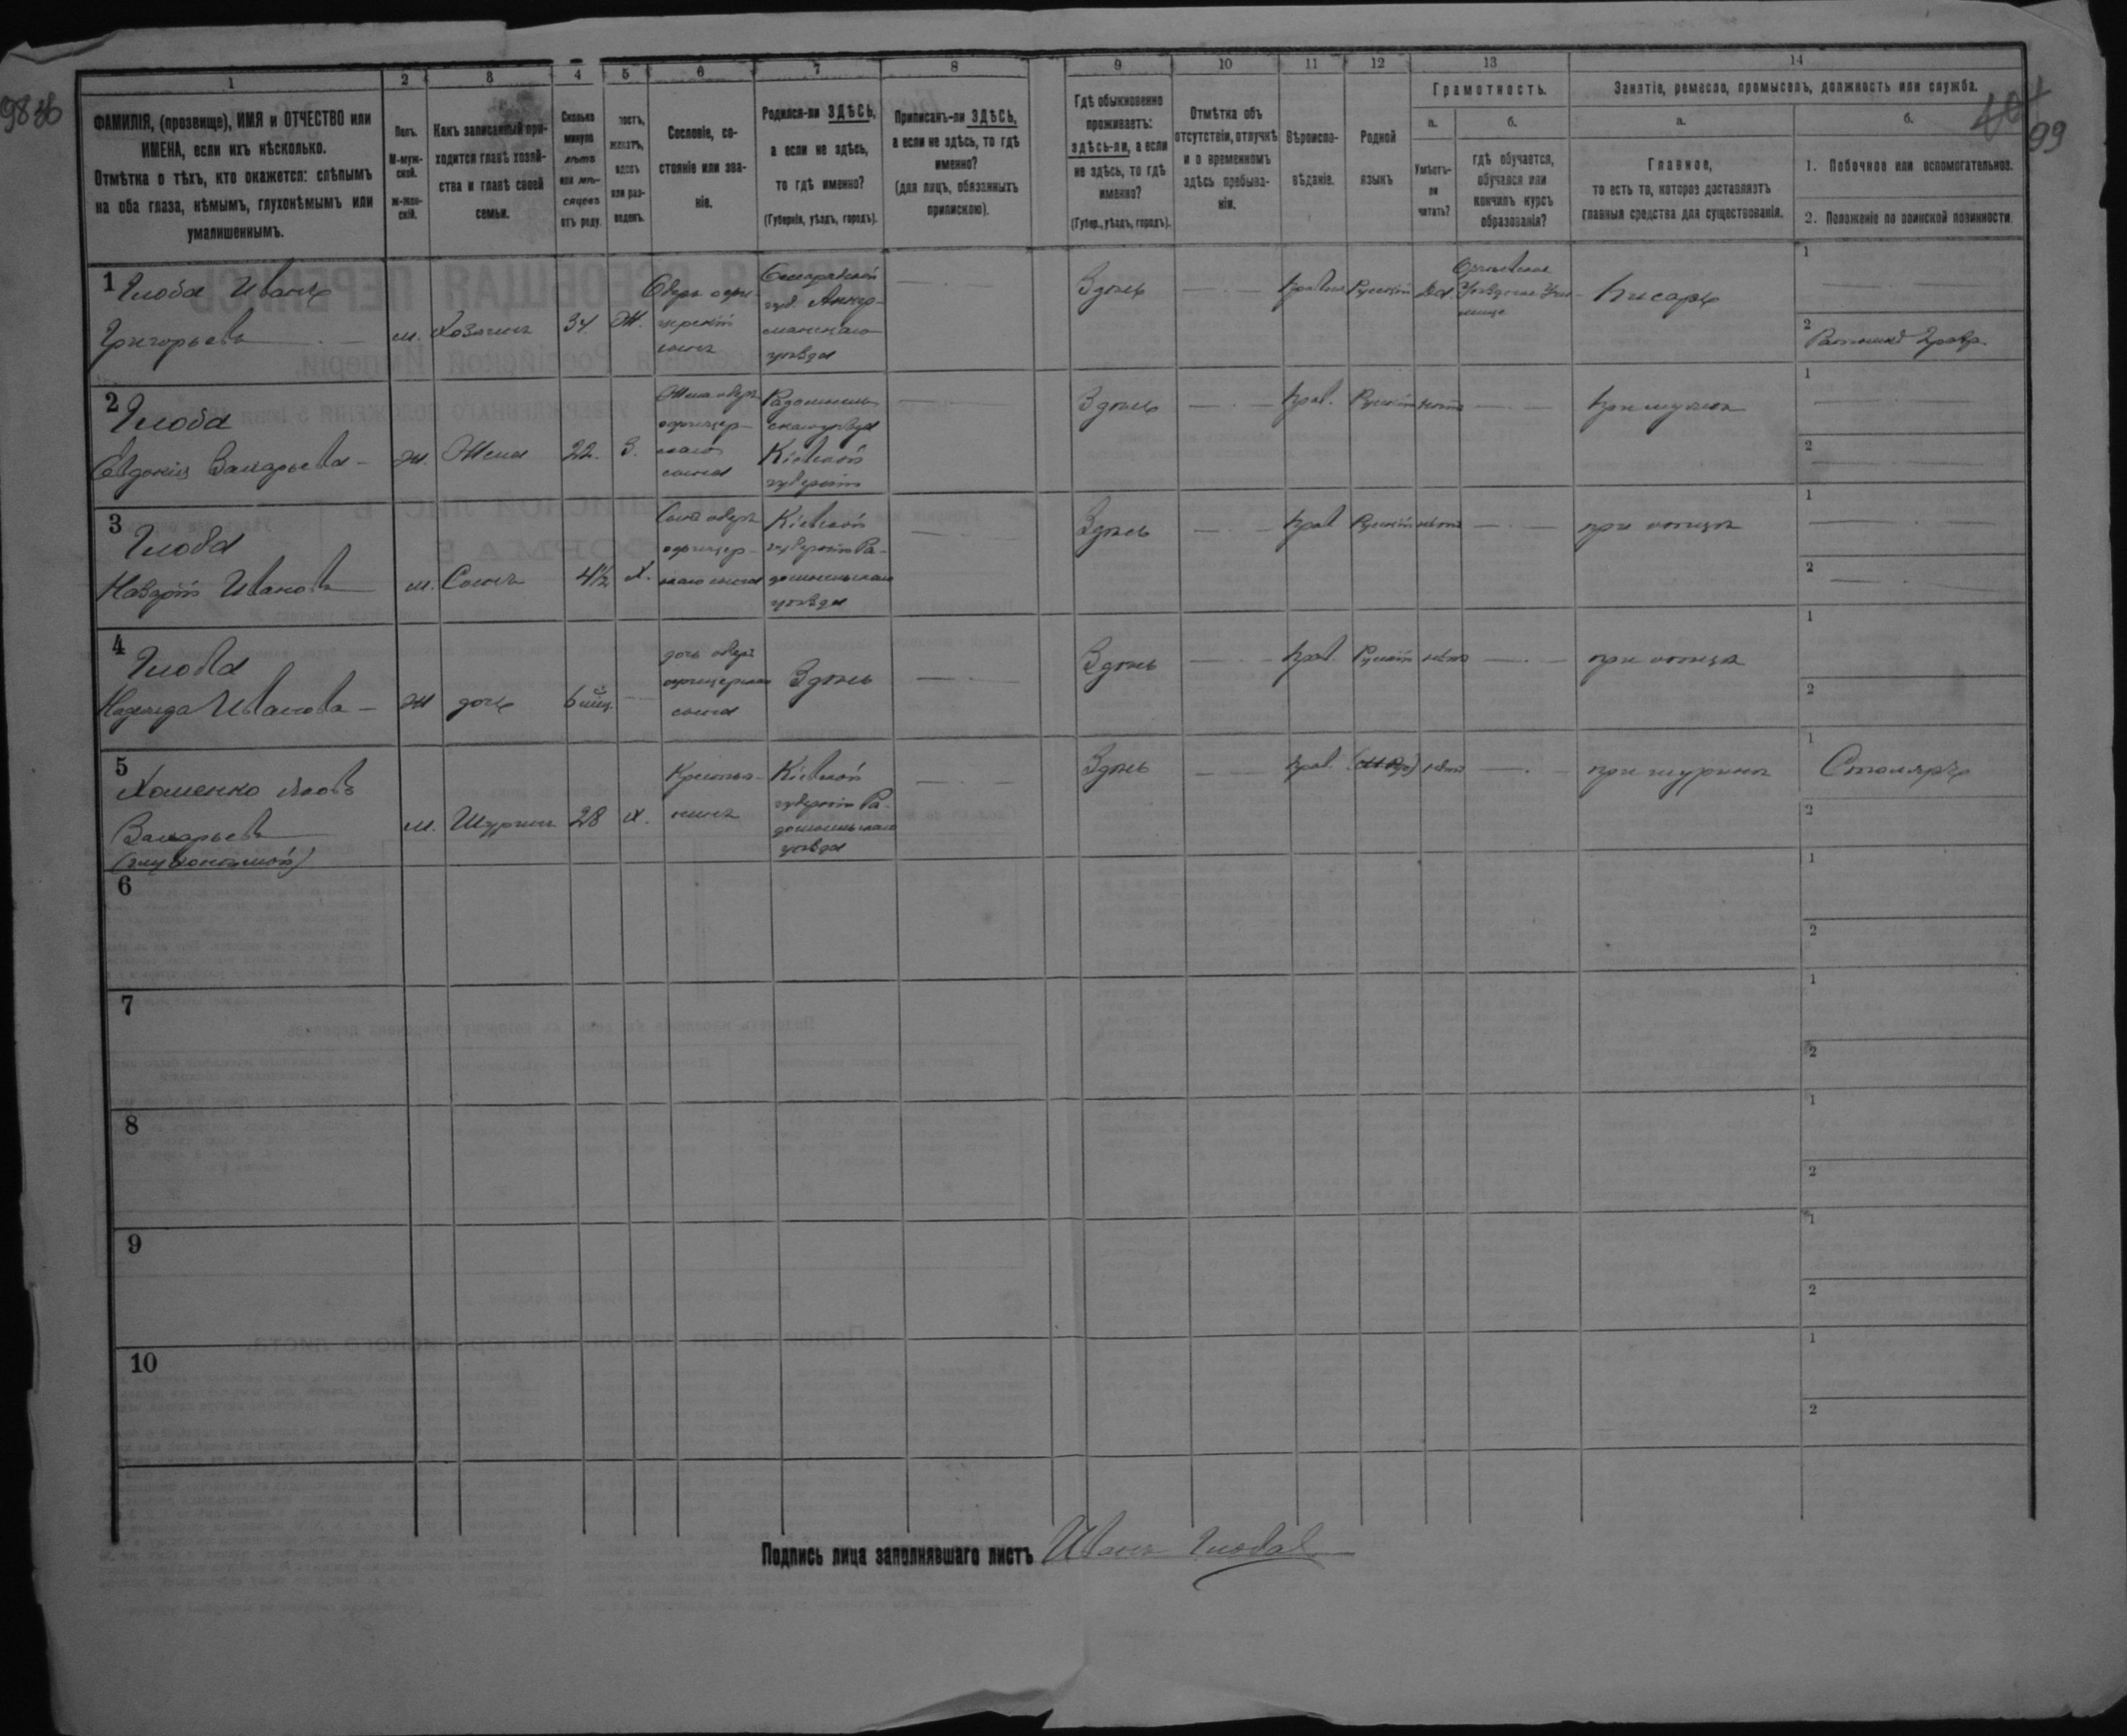 98 об
99
1 2 3 4 5 6 7 8 9 10 11 12 13 14
ФАМИЛІЯ, (прозвище), ИМЯ и ОТЧЕСТВО или
ИМЕНА, если ихъ нѣсколько.
Отмѣтка о тѣхъ, кто окажется: слѣпымъ
на оба глаза, нѣмымъ, глухонѣмымъ или
умалишеннымъ.
Полъ.
М-муж-
ской.
ж-жен-
скій.
Какъ записанный при-
ходится главѣ хозяй-
ства и главѣ своей
семьи.
Сколько
минуло
лѣтъ
или мѣ-
сяцевъ
отъ роду.
женатъ,
вдовъ
или раз-
веденъ.
Сословіе, со-
стояніе или зва-
ніе.
Родился-ли ЗДѢСЬ,
а если не здѣсь,
то гдѣ именно?
(Губернія, уѣздъ, городъ).
Приписанъ-ли ЗДѢСЬ,
а если не здѣсь, то гдѣ
именно?
(для лицъ, обязанныхъ
припискою).
Гдѣ обыкновенно
проживаетъ:
здѣсь-ли, а если
не здѣсь, то гдѣ
именно?
(Губер., уѣздъ, городъ).
Отмѣтка объ
отсутствіи, отлучкѣ
и о временномъ
здѣсь пребыва-
ніи.
Вѣроиспо-
вѣданіе.
Родной
языкъ
Грамотность.
а.
Умѣетъ-
ли
читать?
б.
гдѣ обучается,
обучался или
кончилъ курсъ
образованія?
Занятіе, ремесло, промыселъ, должность или служба.
а.
Главное,
то есть то, которое доставляетъ
главныя средства для существованія.
б.
1. Побочное или вспомогательное.
2. Положеніе по воинской повинности.
1 Глоба Иванъ
Григорьевъ
м. Хозяинъ 34 Ж.
Оберъ офи-
церскій
сынъ
губ. Аккер-
манскаго
уѣзда
Здѣсь
Русскій
Да
Уѣздное Учи-
лище
Писарь
1
2
2 Глоба
Евдокія Захарьева
ж. Жена 22. З.
Жена оберъ
офицер-
скаго
сына
Радомысль-
скаго уѣзда
Кіевской
губерніи
Здѣсь
Прав.
Русскій
нѣтъ
при мужѣ
1
2
3 Глоба
Иванов
м. Сынъ 4½ х.
Сынъ оберъ
офицер-
скаго сына
Кіевской
губерніи Ра-
домысльскаго
уѣзда
Здѣсь
Прав
Русскій
нѣтъ
при отцѣ
1
2
4 Глоба
Надежда Иванова
ж дочь 6 мѣс.
дочь оберъ
офицерскаго
сына
Здѣсь
Здѣсь
Прав.
Русскій
нѣтъ
при отцѣ
1
2
5 Хоменко Яковъ
Захарьевъ
(глухонѣмой)
м. Шуринъ 28 х.
Крестья-
нинъ
Кіевской
губерніи Ра-
домысльскаго
уѣзда
Здѣсь
Прав.
нѣтъ
при шуринѣ
1 Столяръ
2
6
1
2
7
1
2
8
1
2
9
1
2
10
1
2
Подпись лица заполнявшаго листъ Иванъ Глоба